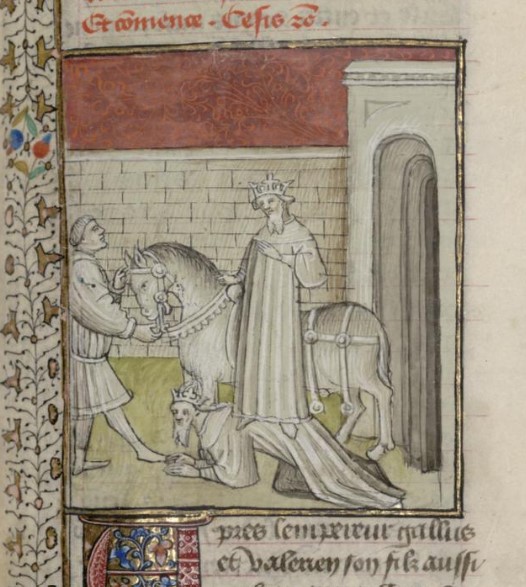 Et cōmence . Cesis ro .
pres lempereur gallus
et valerien son filz aussi